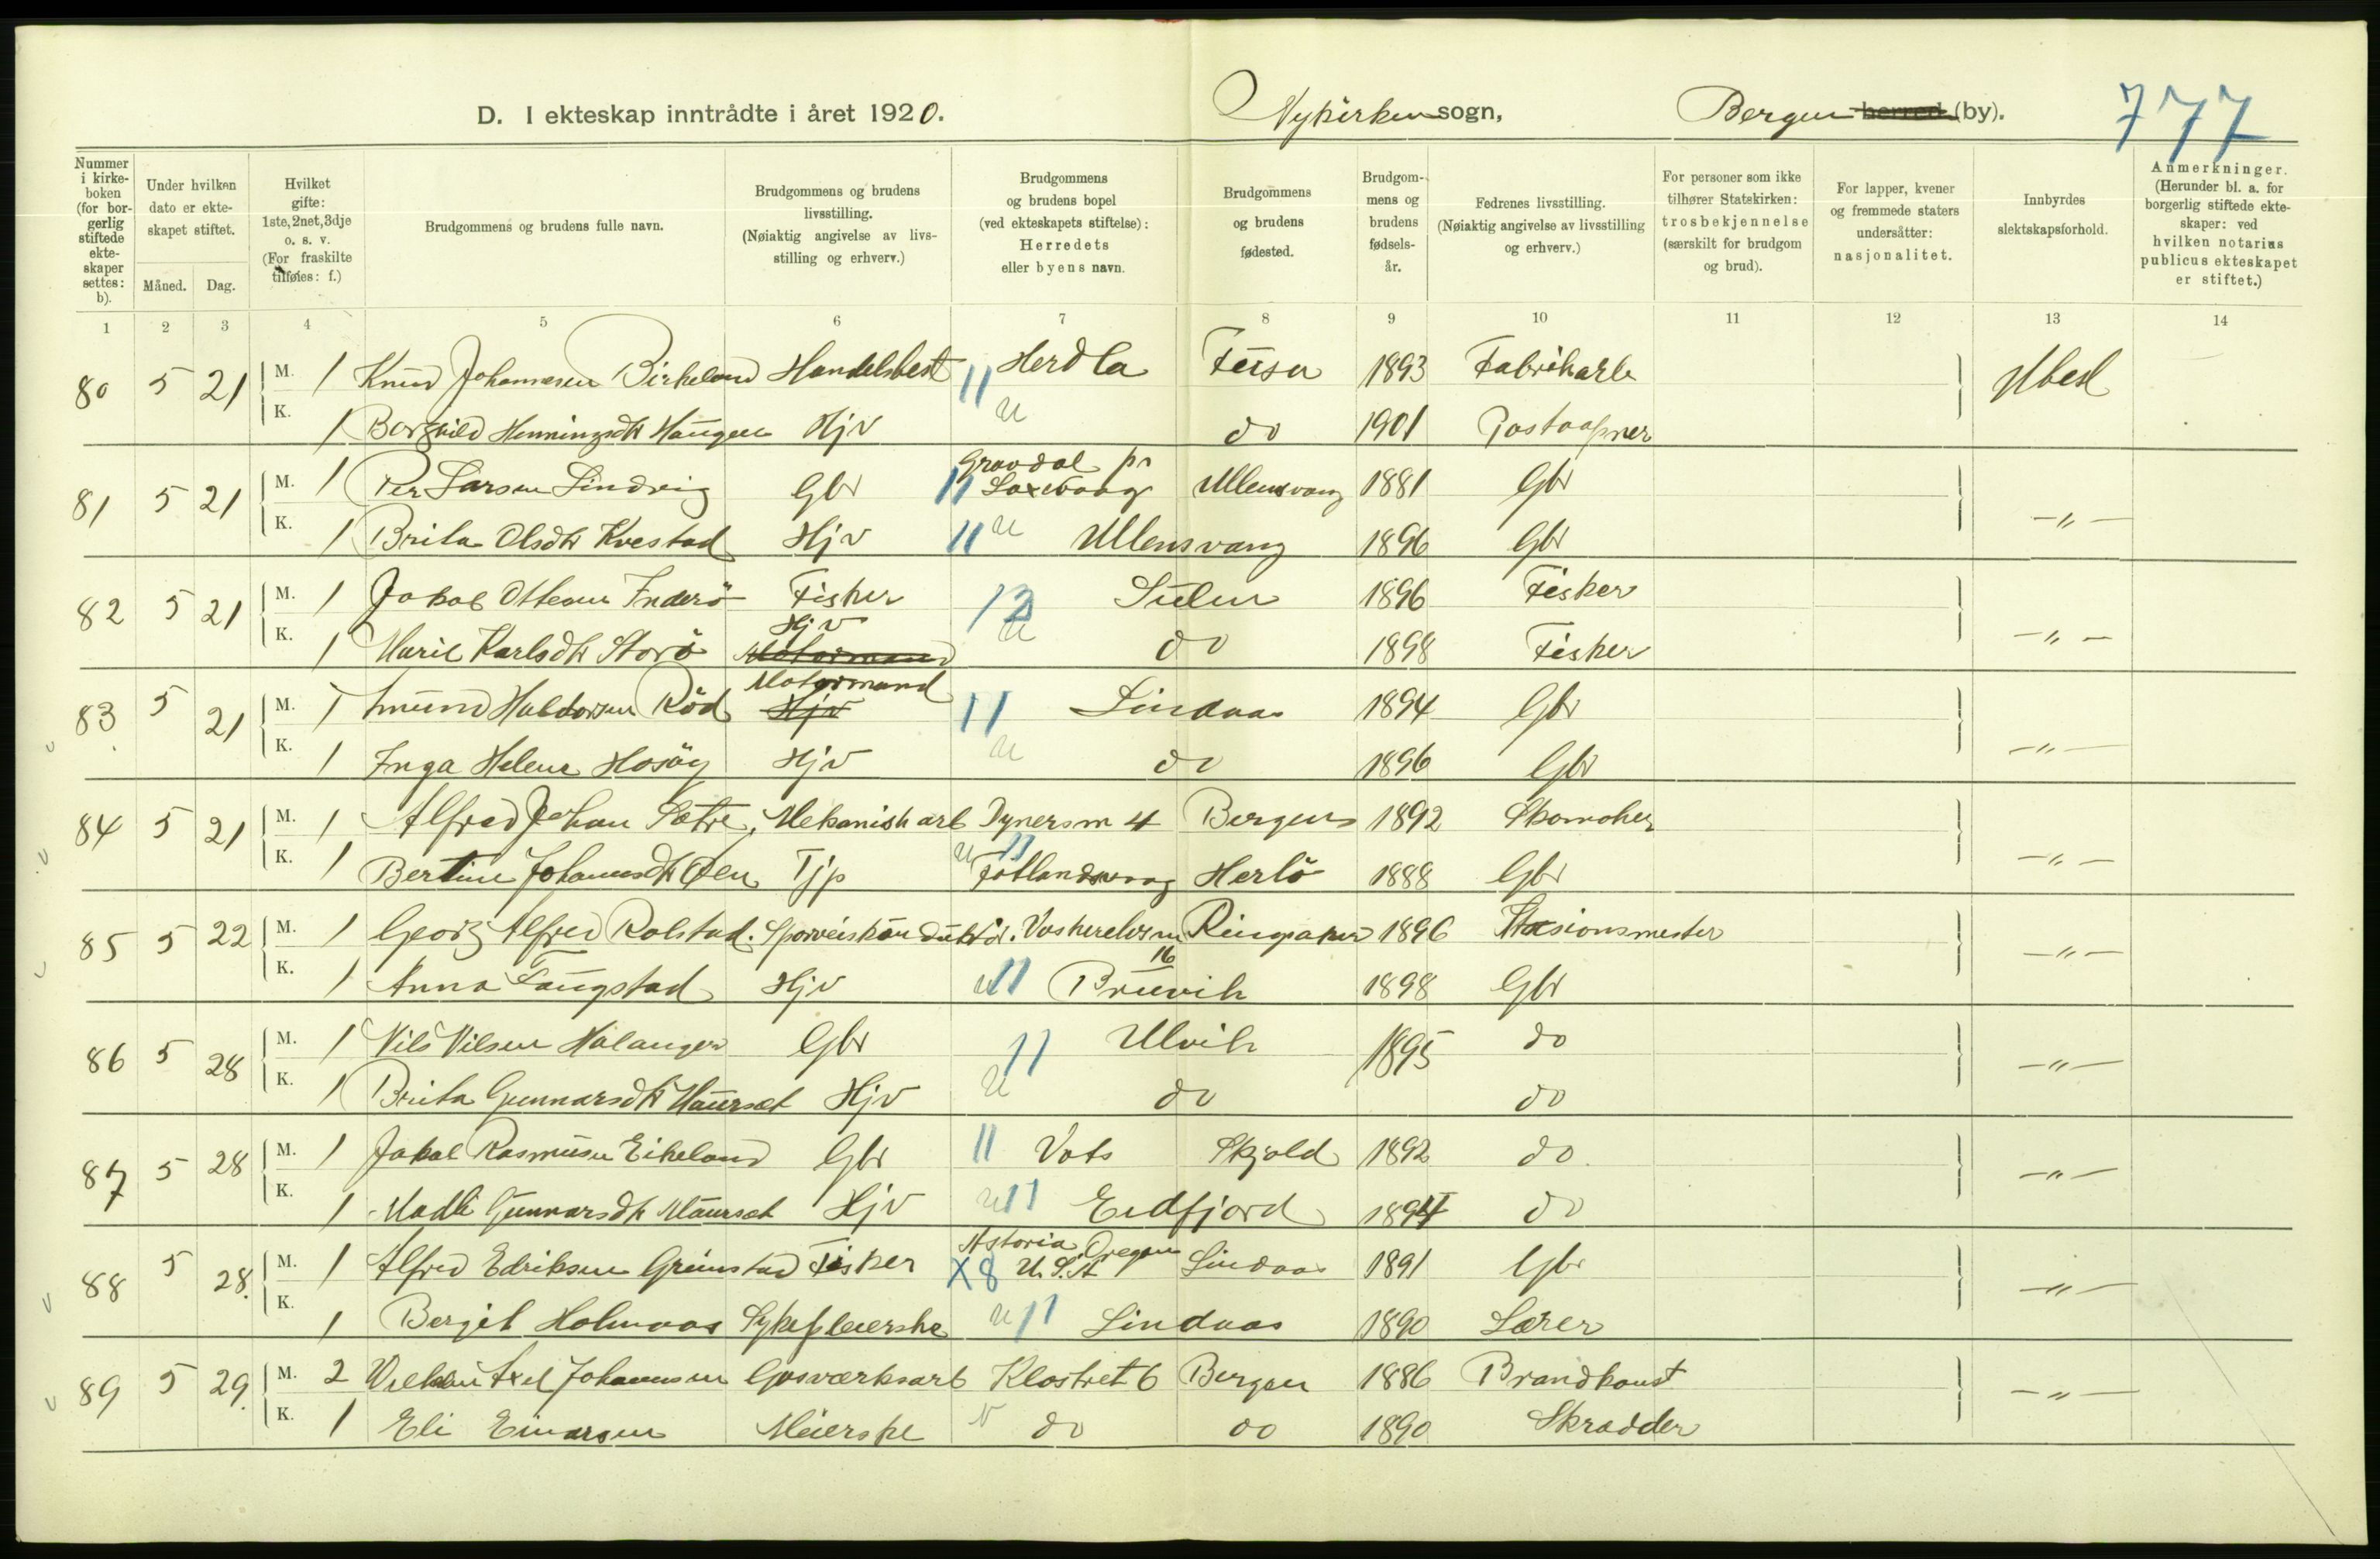 D. I ekteskap inntrådte i året 1920. Nykirken sogn, Bergen herred (by). 777
Nummer i kirkeboken (for borgerlig stiftede ekteskaper settes: b).
Under hvilken dato er ekteskapet stiftet.
Måned. Dag.
Hvilket gifte: 1ste, 2net, 3dje o. s. v. (For fraskilte tilføies: f.)
Brudgommens og brudens fulle navn.
Brudgommens og brudens livsstilling. (Nøiaktig angivelse av livsstilling og erhverv.)
Brudgommens og brudens bopel (ved ekteskapets stiftelse): Herredets eller byens navn.
Brudgommens og brudens fødested.
Brudgommens og brudens fødselsår.
Fedrenes livsstilling. (Nøiaktig angivelse av livsstilling og erhverv.)
For personer som ikke tilhører Statskirken: trosbekjennelse (særskilt for brudgom og brud).
For lapper, kvener og fremmede staters undersåtter: nasjonalitet.
Innbyrdes slektskapsforhold.
Anmerkninger. (Herunder bl. a. for borgerlig stiftede ekteskaper: ved hvilken notarius publicus ekteskapet er stiftet.)
1 2 3 4 5 6 7 8 9 10 11 12 13 14
80 5 21 M. 1 Knud Johannesen Birkeland Handelsbest 11 Herdla Feisa 1893 Fabrikarb Ubesl
K. 1 Borghild Henningsdtr Haugen Hjv u do 1901 Postaapner
81 5 21 M. 1 Per Larsen Lindvig Gbr 11 Gravdal pr Laxevaag Ullensvang 1881 Gbr
K. 1 Brita Olsdtr Kvestad Hjv 11 u Ullensvang 1896 Gbr —„—
82 5 21 M. 1 Jakob Ottesen Inderö Fisker 12 Sulen 1896 Fisker
K. 1 Marie Karlsdtr Storö Hjv Motormand u do 1898 Fisker —„—
83 5 21 M. 1 Haldorsen Röd Motormand Hjv 11 Lindaas 1894 Gbr
K. 1 Inga Helene Hosöy Hjv u do 1896 Gbr —„—
84 5 21 M. 1 Alfred Johan Sætre, Mekanisk arb Dynersm 4 Bergen 1892 Skomaker
K. 1 Bertine Johannesdtr Øen Tjp u 11 Fotlandsvaag Herlö 1888 Gbr —„—
85 5 22 M. 1 Georg Alfred Rolstad. Sporveiskonduktör. Vaskerelvsm 16 Ringsaker 1896 Stasionsmester
K. 1 Anna Langstad Hjv u 11 Bruvik 1898 Gbr —„—
86 5 28 M. 1 Nils Nilsen Halanger Gbr 11 Ulvik 1895 do
K. 1 Brita Gunnarsdtr Maurset Hjv u do do —„—
87 5 28 M. 1 Jakob Rasmusen Eikeland Gbr 11 Vats Skjold 1892 do
K. 1 Madli Gunnarsdtr Maurset Hjv u 11 Eidfjord 1894 do —„—
88 5 28. M. 1 Alfred Edriksen Grimstad Fisker X8 Astoria Oregon U.S.A Lindaas 1891 Gbr
K. 1 Bergit Holmaas Sykepleierske u 11 Lindaas 1890 Lærer —„—
89 5 29. M. 2 Axel Johannesen Gasværksarb Klostret 6 Bergen 1886 Brandkonst
K. 1 Eli Einarsen Meierske N do do 1890 Skradder —„—